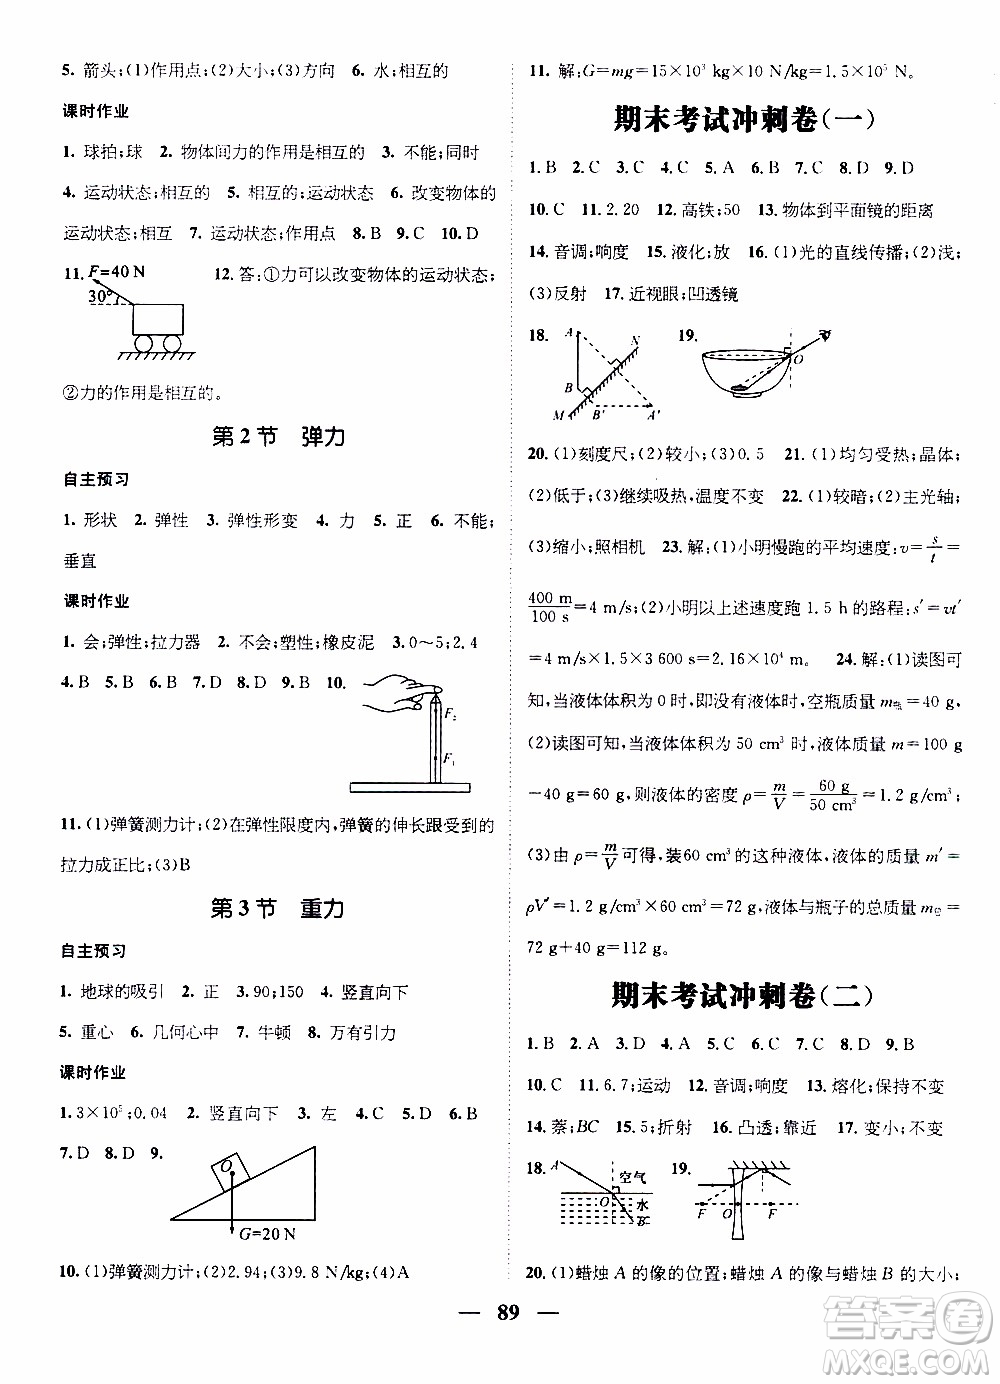 5. 箭头;(1)作用点;(2)大小;(3)方向 6. 水;相互的
课时作业
1. 球拍;球 2. 物体间力的作用是相互的 3. 不能;同时
4. 运动状态;相互的 5. 相互的;运动状态 6. 改变物体的
运动状态;相互 7. 运动状态;作用点 8. B 9. C 10. D
11. F=40 N 30° 12. 答:①力可以改变物体的运动状态;
②力的作用是相互的。
第2节 弹力
自主预习
1. 形状 2. 弹性 3. 弹性形变 4. 力 5. 正 6. 不能;
垂直
课时作业
1. 会;弹性;拉力器 2. 不会;塑性;橡皮泥 3. 0～5;2.4
4. B 5. B 6. B 7. D 8. D 9. B 10.
F₂
F₁
11. (1)弹簧测力计;(2)在弹性限度内,弹簧的伸长跟受到的
拉力成正比;(3)B
第3节 重力
自主预习
1. 地球的吸引 2. 正 3. 90;150 4. 竖直向下
5. 重心 6. 几何心中 7. 牛顿 8. 万有引力
课时作业
1. 3×10⁵;0.04 2. 竖直向下 3. 左 4. C 5. B 6. D
7. D 8. D 9.
O
G=20 N
10. (1)弹簧测力计;(2)2.94;(3)9.8 N/kg;(4)A
11. 解:G=mg=15×10³ kg×10 N/kg=1.5×10⁵ N。
期末考试冲刺卷(一)
1. B 2. C 3. C 4. C 5. A 6. B 7. C 8. D 9. D
10. C 11. 2.20 12. 高铁;50 13. 物体到平面镜的距离
14. 音调;响度 15. 液化;放 16. (1)光的直线传播;(2)浅;
(3)反射 17. 近视眼;凹透镜
18. A N B M B' A' 19. O
20. (1)刻度尺;(2)较小;(3)0.5 21. (1)均匀受热;晶体;
(2)低于;(3)继续吸热,温度不变 22. (1)较暗;(2)主光轴;
(3)缩小;照相机 23. 解:(1)小明慢跑的平均速度:v=s/t=
400 m/100 s=4 m/s;(2)小明以上述速度跑 1.5 h 的路程:s′=vt′
=4 m/s×1.5×3 600 s=2.16×10⁴ m。 24. 解:(1)读图可
知,当液体体积为 0 时,即没有液体时,空瓶质量 m空=40 g,
(2)读图可知,当液体体积为 50 cm³ 时,液体质量 m=100 g
-40 g=60 g,则液体的密度 ρ=m/V=60 g/50 cm³=1.2 g/cm³;
(3)由 ρ=m/V可得,装60 cm³ 的这种液体,液体的质量 m′=
ρV′=1.2 g/cm³×60 cm³=72 g,液体与瓶子的总质量 m总=
72 g+40 g=112 g。
期末考试冲刺卷(二)
1. B 2. A 3. D 4. A 5. C 6. C 7. D 8. D 9. B
10. C 11. 6.7;运动 12. 音调;响度 13. 熔化;保持不变
14. 萘;BC 15. 5;折射 16. 凸透;靠近 17. 变小;不变
18. A 空气 O 水 B 19. F O F
20. (1)蜡烛 A 的像的位置;蜡烛 A 的像与蜡烛 B 的大小;
— 89 —
答案圈
MXQE.COM